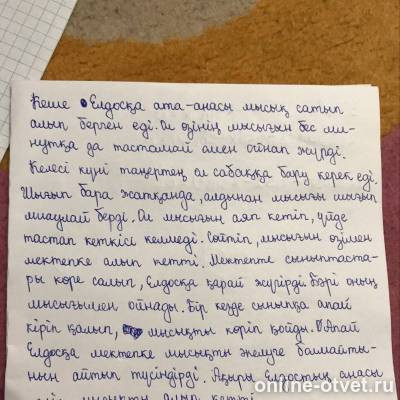 Кеше Елдосқа ата-анасы мысық сатып
алып берген еді. Ол өзінің мысығын бес ми-
нутқа да тастамай онымен ойнап жүрді.
Келесі күні таңертең ол сабаққа бару керек еді.
Шығып бара жатқанда, алдынан мысығы шығып
мияулай берді. Ол мысығын аяп кетіп, үйде
тастап кеткісі келмеді. Сөйтіп, мысығын өзімен
мектепке алып кетті. Мектепте сыныптаста-
ры көре салып, Елдосқа қарай жүгірді бәрі оның
мысығымен ойнады. Бір кезде сыныпқа апай
кіріп қалып, мысықты көріп қойды. Апай
Елдосқа мектепке мысықты әкелуге болмайты-
нын айтып түсіндірді. Ақыры Елдостың анасы
келіп мысықты алып кетті.
online-otvet.ru